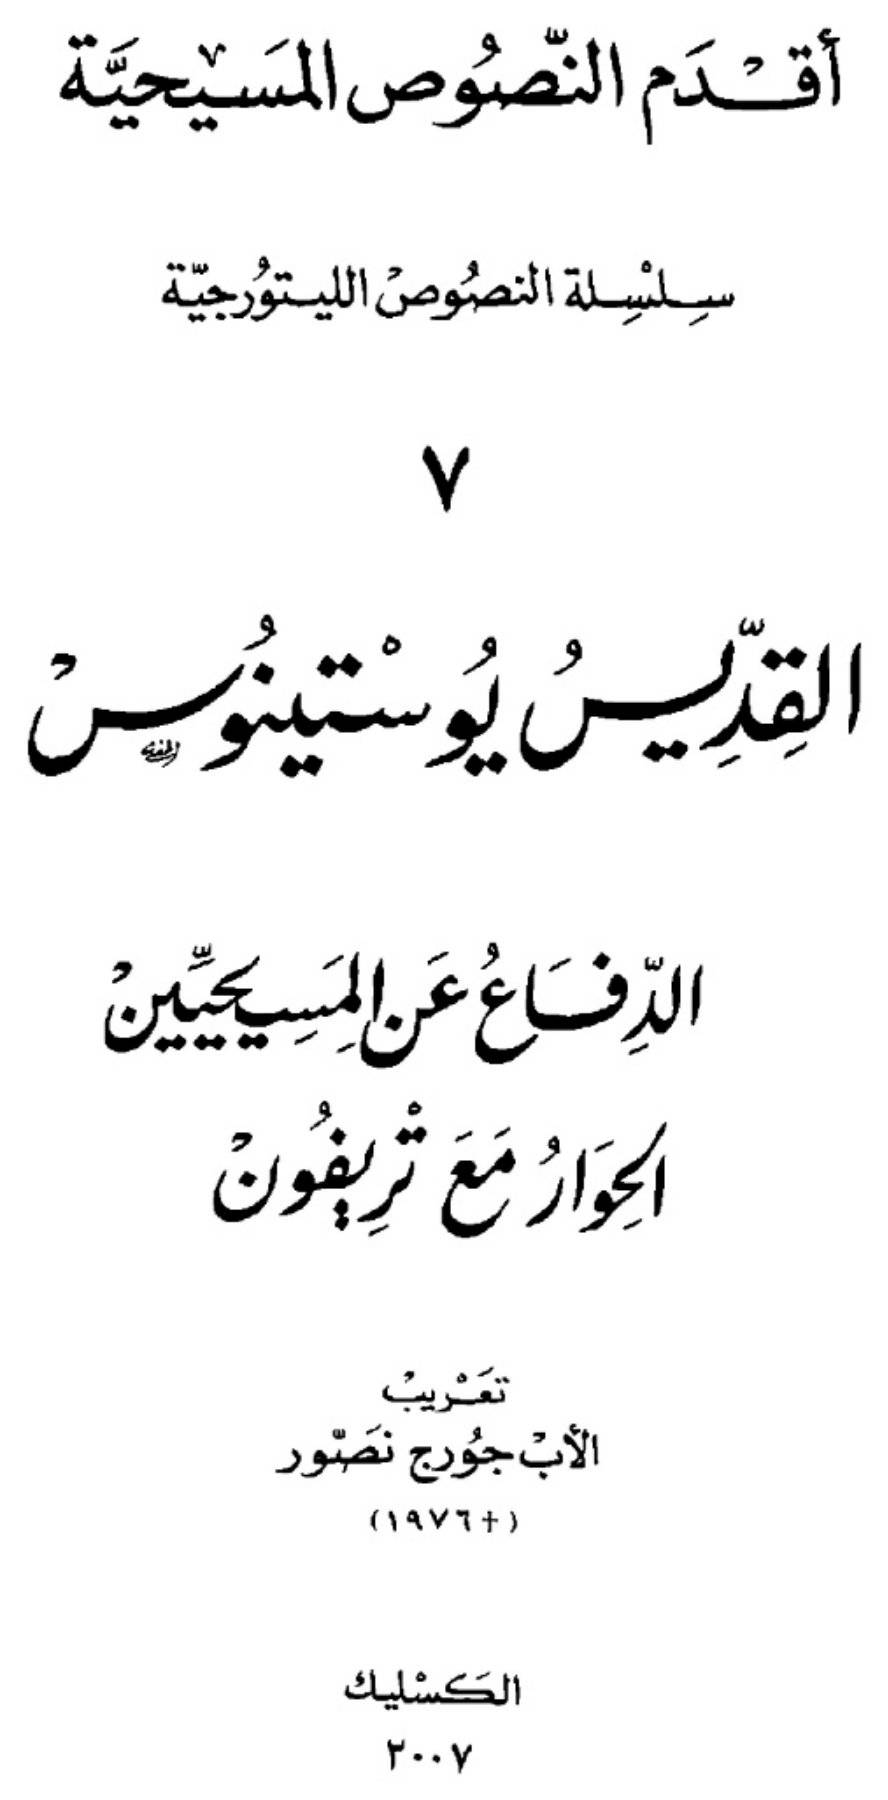 أقْدَم النّصُوص المَسيْحيَّة
سِلسْلِة النصُوصْ الليتورُجيّة
٧
القِدِّيسُ يُوسْتِينُوسْ
الدِّفَاعُ عَن المَسِيحِيِّينْ
الحِوَارُ مَعَ تْرِيفُونْ
تعَرْيبْ
الأبْ جوُرج نصَّور
(+١٩٧٦)
الكَسْليك
٢٠٠٧